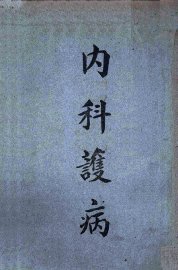 内科護病